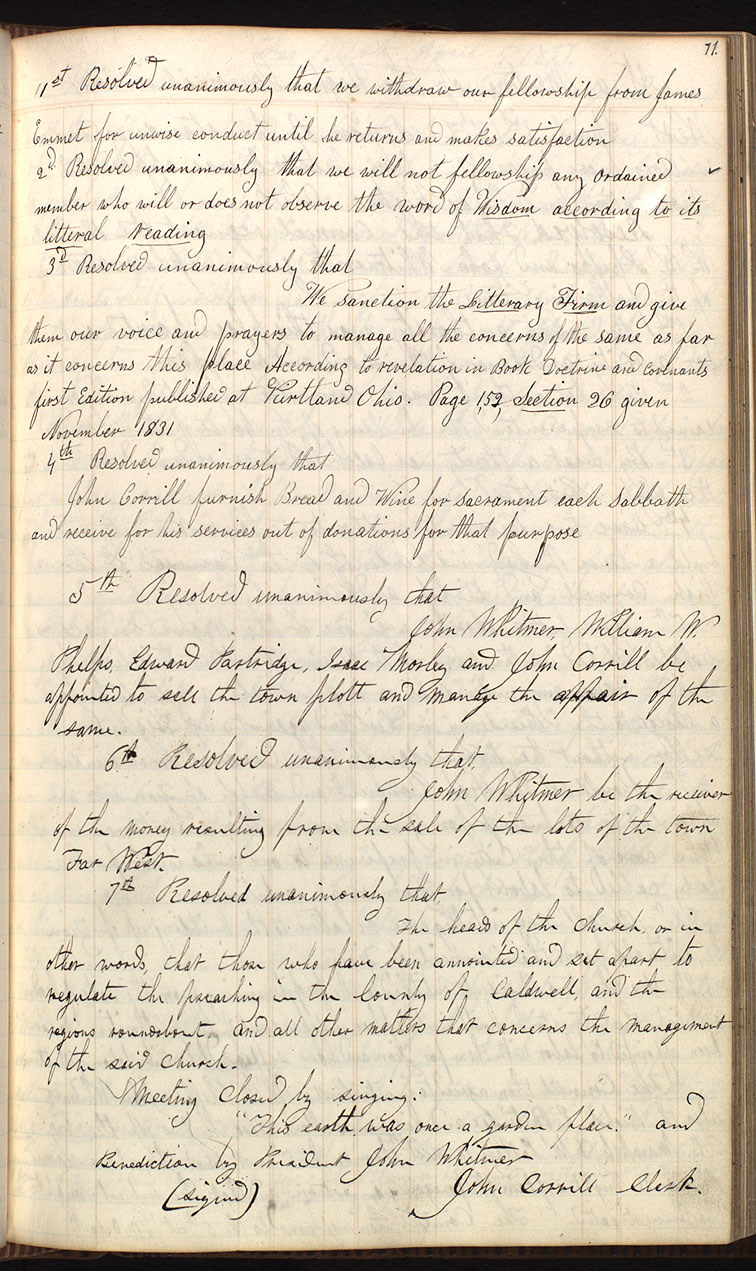 71.
1st Resolved unanimously that we withdraw our fellowship from James
Emmet for unwise conduct until he returns and makes satisfaction
2d Resolved unanimously that we will not fellowship any ordained
member who will or does not observe the word of Wisdom according to its
litteral reading
3d Resolved unanimously that
We sanction the Litterary Firm and give
them our voice and prayers to manage all the concerns of the same as far
as it concerns this place According to revelation in Book Doctrine and covenants
first Edition published at Kirtland Ohio. Page 152, Section 26 given
November 1831
4th Resolved unanimously that
John Corrill furnish Bread and Wine for sacrament each sabbath
and receive for his services out of donations for that purpose
5th Resolved unanimously that
John Whitmer, William W.
Phelps, Edward Partridge, Isaac Morley and John Corrill be
appointed to sell the town plott and manage the affair of the
same.
6th Resolved unanimously that,
John Whitmer be the receiver
of the money resulting from the sale of the lots of the town
Far West.
7th Resolved unanimously that
The heads of the church, or in
other words, that those who have been annointed and set apart to
regulate the preaching in the County of Caldwell, and the
regions roundabout, and all other matters that concerns the management
of the said church.
Meeting closed by singing:
"This earth was once a garden place." and
Benediction by President John Whitmer
(sigind) John Corrill Clerk.